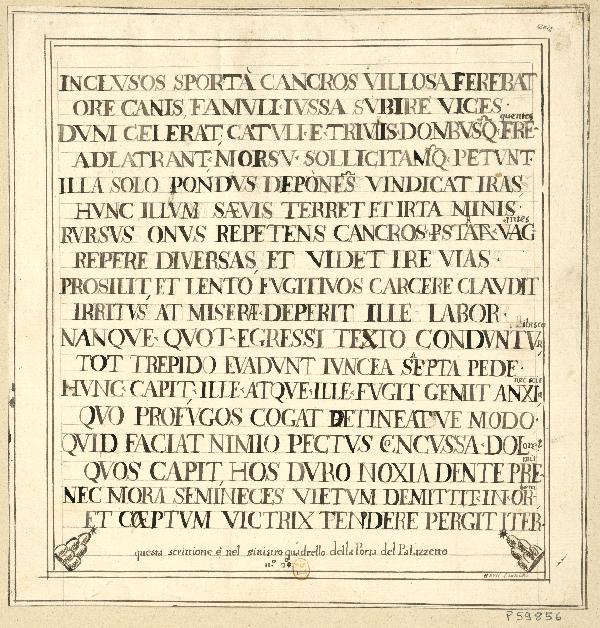 INCLVSOS SPORTÀ CANCROS VILLOSA FEREBAT
ORE CANIS FAMVLI·IVSSA SVBIRE VICES·
DVM CELERAT CATVLI·E·TRIVIIS·DOMIBVSQ·FRE-quentes
ADLATRANT·MORSV·SOLLICITANTQ·PETVNT·
ILLA SOLO PONDVS DEPONENS VINDICAT IRAS
HVNC ILLVM SÆVIS TERRET ET IRTA MINIS·
RVRSVS ONVS REPETENS CANCROS·PSTRATA·VAG-antes
REPERE DIVERSAS ET VIDET IRE VIAS·
PROSILIIT ET LENTO FVGITIVOS CARCERE CLAVDIT
IRRITVS AT MISERÆ·DEPERIT ILLE LABOR·
NANQVE QVOT·EGRESSI TEXTO CONDVNTVR
TOT TREPIDO EVADVNT IVNCEA SEPTA PEDE·
HVNC CAPIT·ILLE·ATQVE·ILLE·FVGIT GEMIT ANXIA
QVO PROFVGOS COGAT DETINEATVE MODO·
QVID FACIAT NIMIO PECTVS CONCVSSA·DOLore?
QVOS CAPIT HOS DVRO NOXIA DENTE PRE-mit
NEC MORA SEMINECES VIETVM DEMITTIT·IN·OR-bem
ET CŒPTVM VICTRIX TENDERE PERGIT ITER·
questa scrittione è nel sinistro quadrello della Porta del Palazzetto
P59856